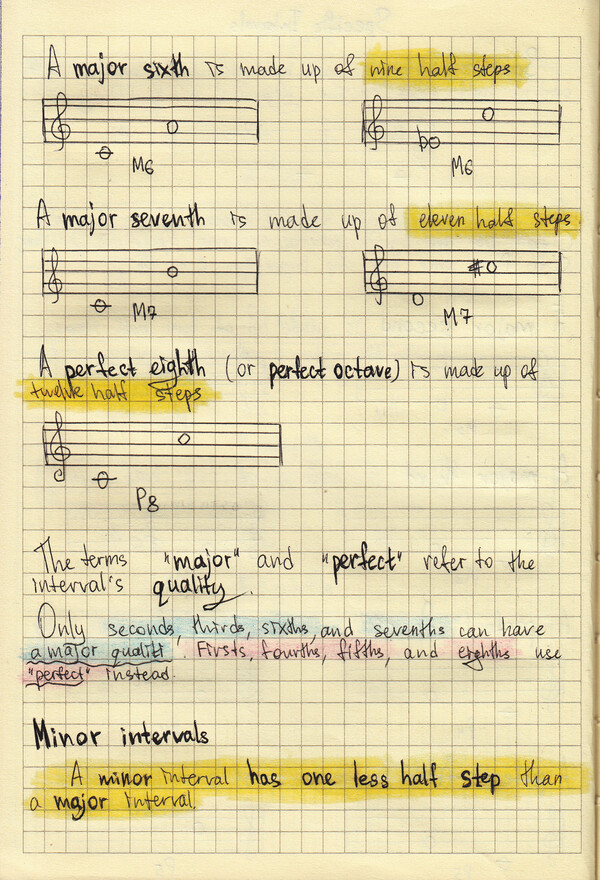 A major sixth is made up of nine half steps
M6 M6
A major seventh is made up of eleven half steps
M7 M7
A perfect eighth (or perfect octave) is made up of
twelve half steps
P8
The terms "major" and "perfect" refer to the
interval's quality.
Only seconds, thirds, sixths, and sevenths can have
a major qualiti. Firsts, fourths, fifths, and eighths use
"perfect" instead.
Minor intervals
A minor interval has one less half step than
a major interval.